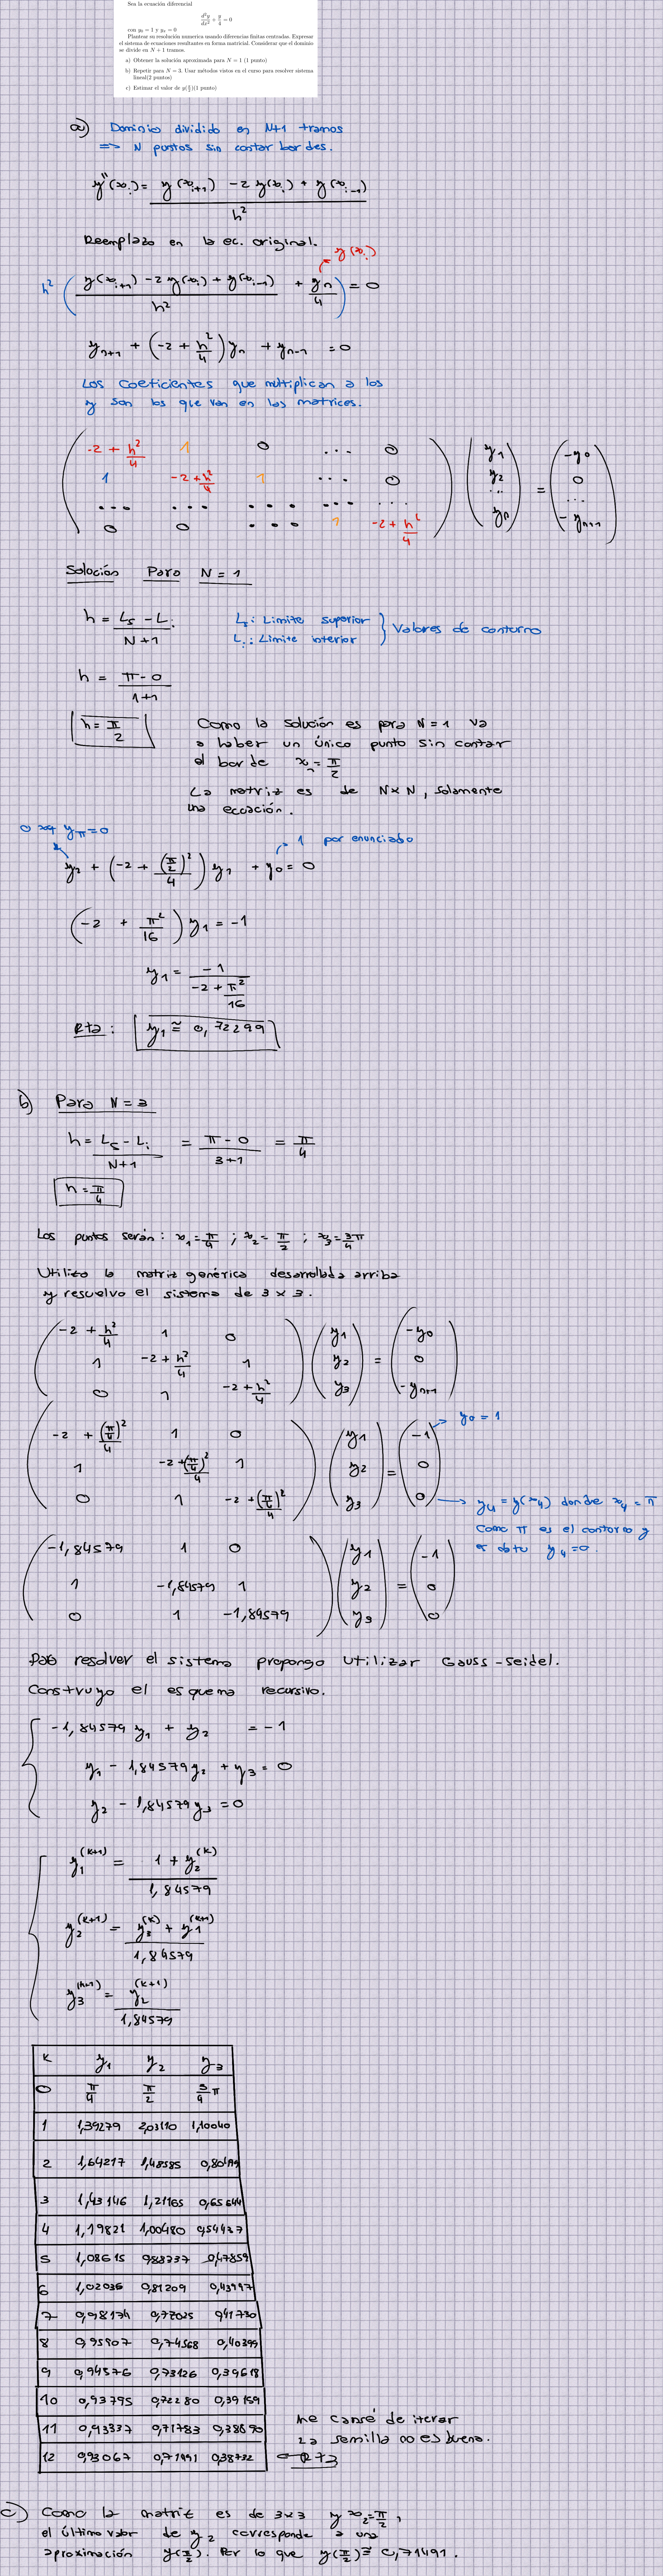 Sea la ecuación diferencial
d²y/dx² + y/4 = 0
con y₀ = 1 y yπ = 0
Plantear su resolución numerica usando diferencias finitas centradas. Expresar
el sistema de ecuaciones resultantes en forma matricial. Considerar que el dominio
se divide en N + 1 tramos.
a) Obtener la solución aproximada para N = 1 (1 punto)
b) Repetir para N = 3. Usar métodos vistos en el curso para resolver sistema
lineal(2 puntos)
c) Estimar el valor de y(π/2)(1 punto)
a) Dominio dividido en N+1 tramos
=> N puntos sin contar bordes.
y''(xᵢ) = (y(xᵢ₊₁) - 2 y(xᵢ) + y(xᵢ₋₁)) / h²
Reemplazo en la ec. original.
y(xᵢ)
h² ( (y(xᵢ₊₁) - 2 y(xᵢ) + y(xᵢ₋₁)) / h² + yn/4 ) = 0
yn+1 + (-2 + h²/4) yn + yn-1 = 0
Los coeficientes que multiplican a los
y son los que van en las matrices.
-2 + h²/4 1 0 ... 0 y1 -y0
1 -2 + h²/4 1 ... 0 y2 = 0
... ... ... ... ... ... ...
0 0 ... 1 -2 + h²/4 yn -yn+1
Solución Para N = 1
h = (Ls - Li) / (N+1) Ls: Limite superior } Valores de contorno
Li: Limite inferior
h = (π - 0) / (1+1)
h = π/2 Como la solución es para N = 1 va
a haber un único punto sin contar
el borde x₁ = π/2
La matriz es de N x N, solamente
una ecuación.
0 xq yπ = 0 1 por enunciado
y2 + (-2 + (π/2)²/4) y1 + y0 = 0
(-2 + π²/16) y1 = -1
y1 = -1 / (-2 + π²/16)
Rta: y1 ≅ 0,72299
b) Para N = 3
h = (Ls - Li) / (N+1) = (π - 0) / (3+1) = π/4
h = π/4
Los puntos serán: x1 = π/4 ; x2 = π/2 ; x3 = 3π/4
Utilizo la matriz genérica desarrollada arriba
y resuelvo el sistema de 3 x 3.
-2 + h²/4 1 0 y1 -y0
1 -2 + h²/4 1 y2 = 0
0 1 -2 + h²/4 y3 -yn+1
y0 = 1
-2 + (π/4)²/4 1 0 y1 -1
1 -2 + (π/4)²/4 1 y2 = 0
0 1 -2 + (π/4)²/4 y3 0 → y4 = y(x4) donde x4 = π
Como π es el contorno y
es dato y4 = 0.
-1,84579 1 0 y1 -1
1 -1,84579 1 y2 = 0
0 1 -1,84579 y3 0
Para resolver el sistema propongo utilizar Gauss-Seidel.
Construyo el esquema recursivo.
-1,84579 y1 + y2 = -1
y1 - 1,84579 y2 + y3 = 0
y2 - 1,84579 y3 = 0
y1^(k+1) = (1 + y2^(k)) / 1,84579
y2^(k+1) = (y3^(k) + y1^(k+1)) / 1,84579
y3^(k+1) = y2^(k+1) / 1,84579
K y1 y2 y3
0 π/4 π/2 3/4 π
1 1,39279 2,03110 1,10040
2 1,64217 1,48585
3 1,43146 1,21165 0,65644
4 1,19821 1,00480 0,54437
5 1,08615 0,88337 0,47859
6 1,02036 0,81209 0,43997
7 0,98174 0,77025 0,41730
8 0,95907 0,74568 0,40399
9 0,94576 0,73126 0,39618
10 0,93795 0,72280 0,39159
11 0,93337 0,71783 0,38890 me cansé de iterar
la semilla no es buena.
12 0,93067 0,71491 0,38732 ← Rta
c) Como la matriz es de 3x3 y x2 = π/2,
el último valor de y2 corresponde a una
aproximación y(π/2). Por lo que y(π/2) ≅ 0,71491.